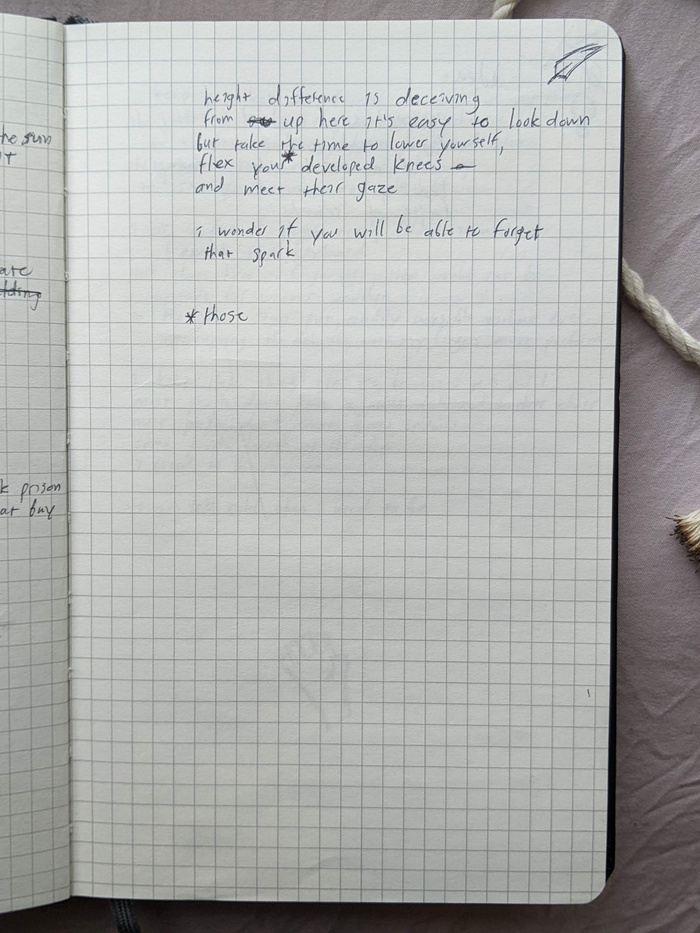 he sun
height difference is deceiving
from up here it's easy to look down
but take the time to lower yourself,
flex your* developed knees
and meet their gaze
i wonder if you will be able to forget
that spark
*those
k prison
buy